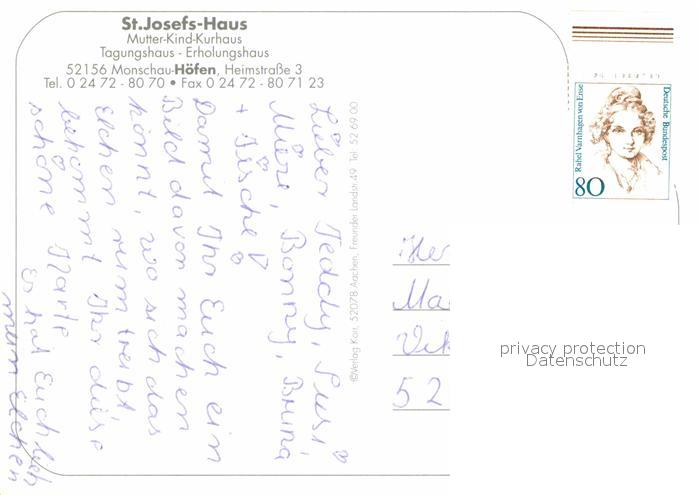 St.Josefs-Haus
Mutter-Kind-Kurhaus
Tagungshaus - Erholungshaus
52156 Monschau-Höfen, Heimstraße 3
Tel. 0 24 72 - 80 70 • Fax 0 24 72 - 80 71 23
Lieber Teddy, Susi
Mini, Bonny, Bruna
+ Fische!
Damit Ihr Euch ein
Bild davon machen
könnt, wo sich das
Elchen rumtreibt
bekommt Ihr diese
schöne Karte
Es hat Euch lieb
mum Elchen
©Verlag Korr, 52078 Aachen, Freunder Landstr.49 Tel. 52 69 00
Deutsche Bundespost
Rahel Varnhagen von Ense
80
Her
Ma
52
privacy protection
Datenschutz